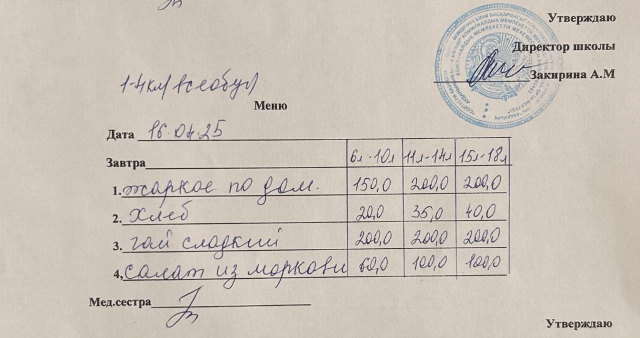 Утверждаю
Директор школы
Закирина А.М
1-4 кл всеобуч
Меню
Дата 16.04.25
Завтра 6л-10л 11л-14л 15л-18л
1. жаркое по дом. 150,0 200,0 200,0
2. Хлеб 20,0 35,0 40,0
3. чай сладкий 200,0 200,0 200,0
4. салат из моркови 60,0 100,0 100,0
Мед.сестра
Утверждаю